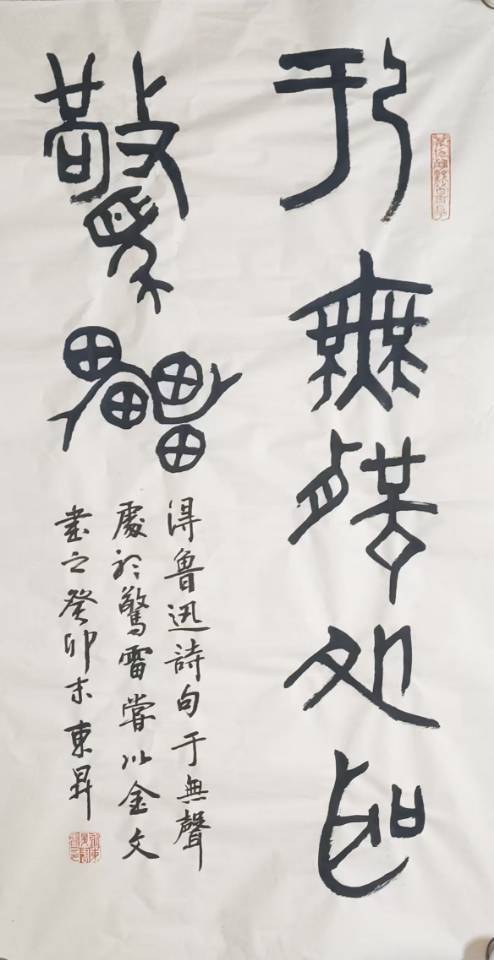 于無聲处聽
驚雷
得魯迅詩句于無聲
處於驚雷嘗以金文
書之癸卯末東昇